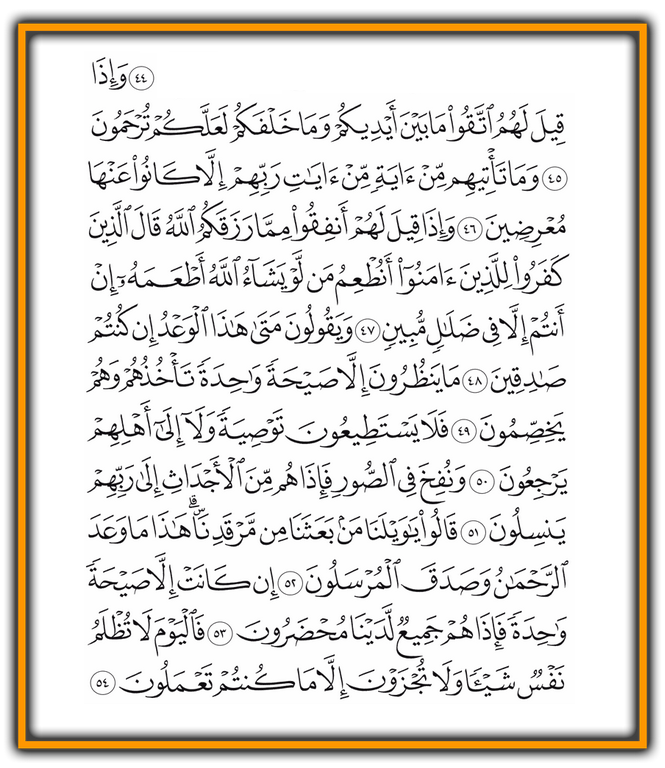 ٤٤ وَإِذَا
قِيلَ لَهُمُ ٱتَّقُوا۟ مَا بَيْنَ أَيْدِيكُمْ وَمَا خَلْفَكُمْ لَعَلَّكُمْ تُرْحَمُونَ
٤٥ وَمَا تَأْتِيهِم مِّنْ ءَايَةٍ مِّنْ ءَايَٰتِ رَبِّهِمْ إِلَّا كَانُوا۟ عَنْهَا
مُعْرِضِينَ ٤٦ وَإِذَا قِيلَ لَهُمْ أَنفِقُوا۟ مِمَّا رَزَقَكُمُ ٱللَّهُ قَالَ ٱلَّذِينَ
كَفَرُوا۟ لِلَّذِينَ ءَامَنُوٓا۟ أَنُطْعِمُ مَن لَّوْ يَشَآءُ ٱللَّهُ أَطْعَمَهُۥٓ إِنْ
أَنتُمْ إِلَّا فِى ضَلَٰلٍ مُّبِينٍ ٤٧ وَيَقُولُونَ مَتَىٰ هَٰذَا ٱلْوَعْدُ إِن كُنتُمْ
صَٰدِقِينَ ٤٨ مَا يَنظُرُونَ إِلَّا صَيْحَةً وَٰحِدَةً تَأْخُذُهُمْ وَهُمْ
يَخِصِّمُونَ ٤٩ فَلَا يَسْتَطِيعُونَ تَوْصِيَةً وَلَآ إِلَىٰٓ أَهْلِهِمْ
يَرْجِعُونَ ٥٠ وَنُفِخَ فِى ٱلصُّورِ فَإِذَا هُم مِّنَ ٱلْأَجْدَاثِ إِلَىٰ رَبِّهِمْ
يَنسِلُونَ ٥١ قَالُوا۟ يَٰوَيْلَنَا مَنۢ بَعَثَنَا مِن مَّرْقَدِنَا ۜ ۗ هَٰذَا مَا وَعَدَ
ٱلرَّحْمَٰنُ وَصَدَقَ ٱلْمُرْسَلُونَ ٥٢ إِن كَانَتْ إِلَّا صَيْحَةً
وَٰحِدَةً فَإِذَا هُمْ جَمِيعٌ لَّدَيْنَا مُحْضَرُونَ ٥٣ فَٱلْيَوْمَ لَا تُظْلَمُ
نَفْسٌ شَيْـًٔا وَلَا تُجْزَوْنَ إِلَّا مَا كُنتُمْ تَعْمَلُونَ ٥٤